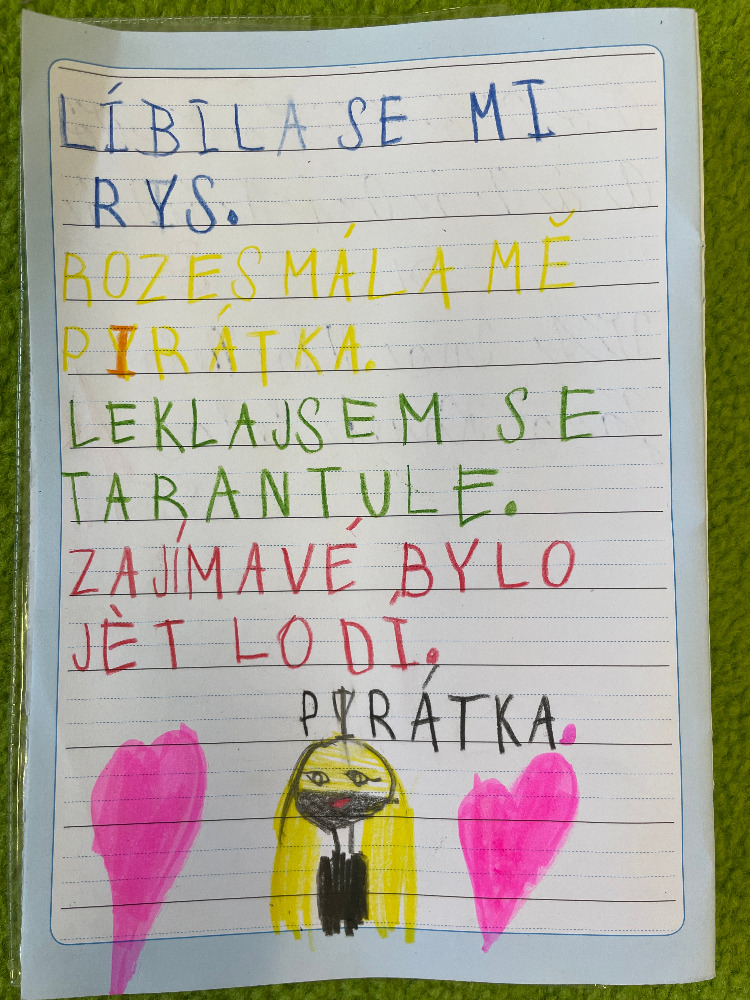 LÍBILA SE MI
RYS.
ROZESMÁLA MĚ
PIRÁTKA.
LEKLAJSEM SE
TARANTULE.
ZAJÍMAVÉ BYLO
JÈT LODÍ.
PIRÁTKA.